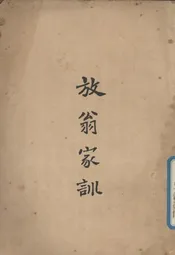 放翁家訓